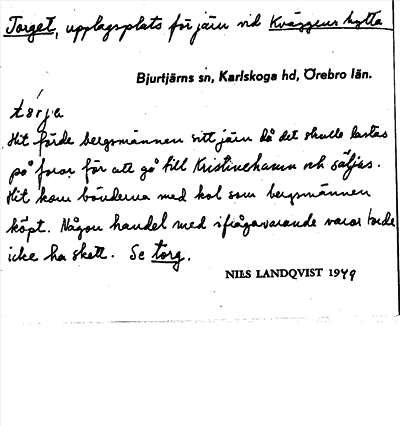 Torget, upplagsplats för järn vid Kväggens hytta
Bjurtjärns sn, Karlskoga hd, Örebro län.
tórje
Hit förde bergsmännen sitt järn då det skulle lastas
på foror för att gå till Kristinehamn och säljas.
Hit kom bönderna med kol som bergsmännen
köpt. Någon handel med ifrågavarande varor torde
icke ha skett. Se torg.
NILS LANDQVIST 1949